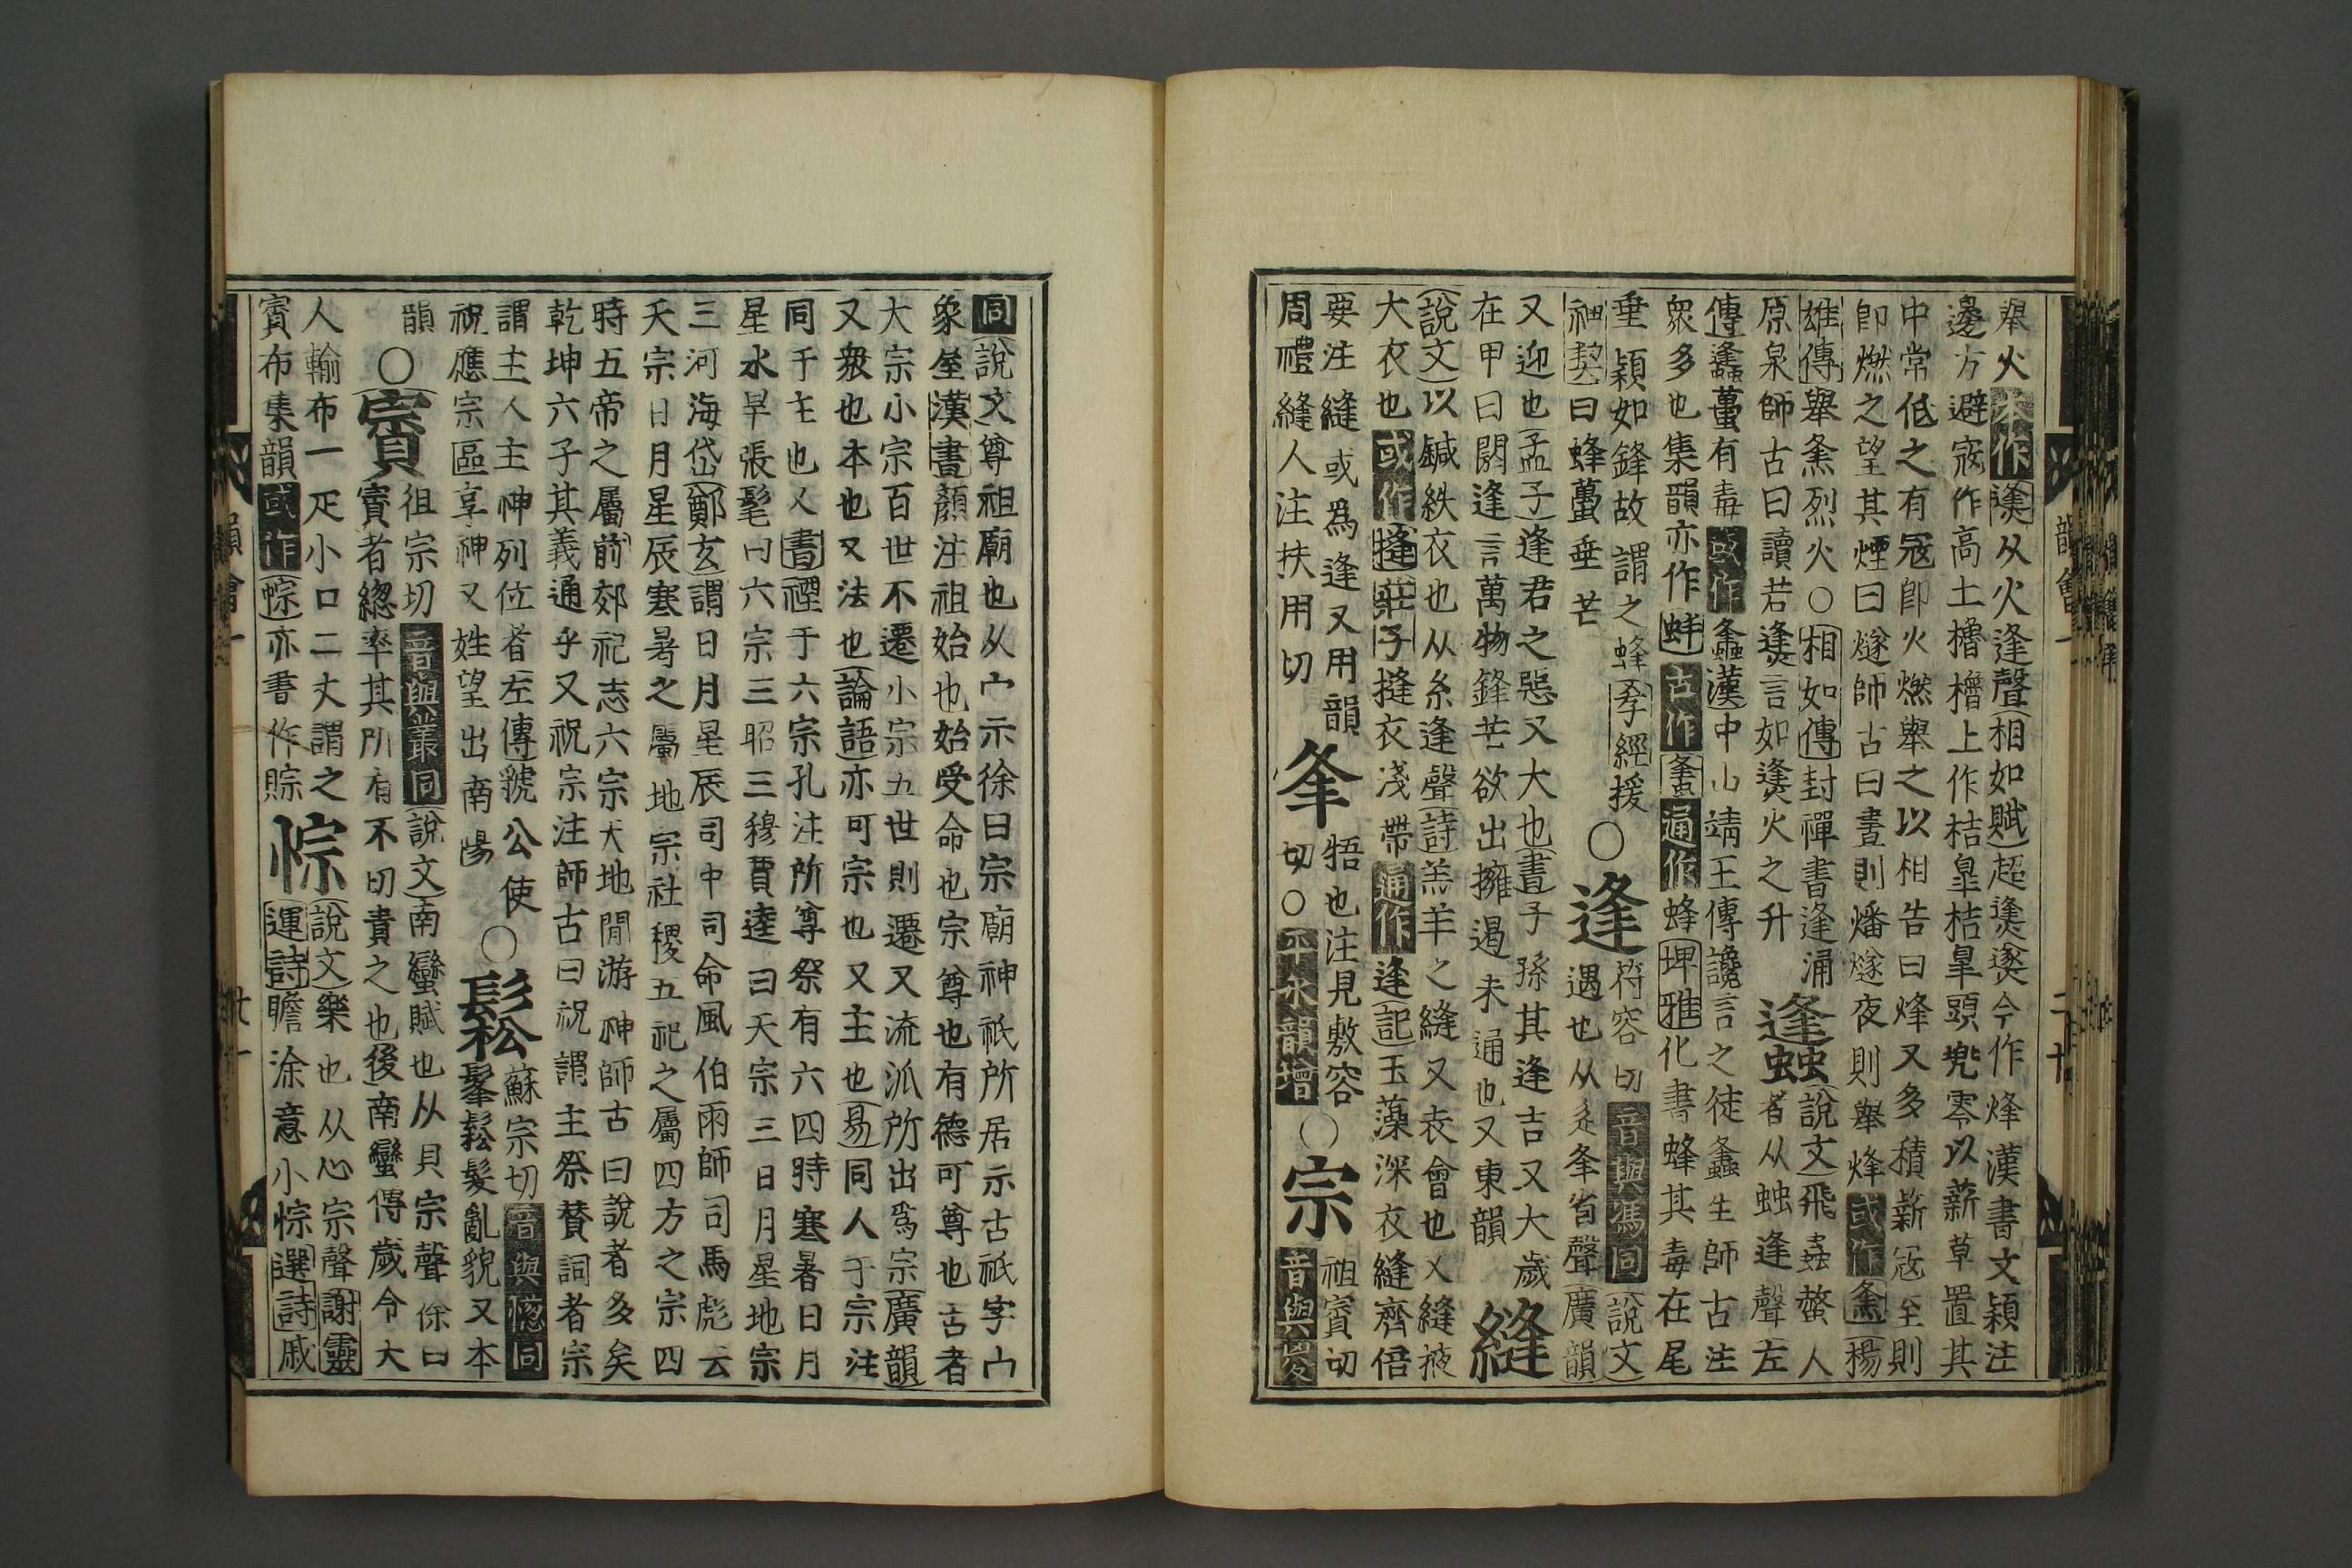 舉火本作㷭从火逢聲相如賦超㷭㷭今作烽漢書文穎注
邊方避寇作高土櫓櫓上作桔皐桔皐頭兠零以薪草置其
中常低之有寇卽火燃舉之以相告曰烽又多積薪寇至則
卽燃之望其煙曰燧師古曰晝則燔燧夜則舉烽或作㷨楊
雄傳舉㷨烈火○相如傳封禪書逢涌
原泉師古曰讀若㷭言如㷭火之升
蠭說文飛蟲螫人
者从䖵逢聲左
傳蠭蠆有毒或作螽漢中山靖王傳讒言之徒螽生師古注
衆多也集韻亦作蚌古作䗬通作蜂埤雅化書蜂其毒在尾
垂穎如鋒故謂之蜂孝經援
神契曰蜂蠆垂芒
○逢符容切音與馮同說文
遇也从辵夆省聲廣韻
又迎也孟子逢君之惡又大也書子孫其逢吉又大歲
在甲曰閼逢言萬物鋒芒欲出擁遏未通也又東韻
縫
說文以鍼紩衣也从糸逢聲詩羔羊之縫又衣會也又縫掖
大衣也或作摓莊子摓衣淺帶通作逢記玉藻深衣縫齊倍
要注縫或爲逢又用韻
周禮縫人注扶用切
夆牾也注見敷容
切○平水韻增
○宗祖賨切
音與㚇
同說文尊祖廟也从宀示徐曰宗廟神祇所居示古祇字宀
象屋漢書顔注祖始也始受命也宗尊也有德可尊也古者
大宗小宗百世不遷小宗五世則遷又流派所出爲宗廣韻
又衆也本也又法也論語亦可宗也又主也易同人于宗注
同于主也又書禋于六宗孔注所尊祭有六四時寒暑日月
星水旱張髦曰六宗三昭三穆賈逵曰天宗三日月星地宗
三河海岱鄭玄謂日月星辰司中司命風伯雨師司馬彪云
天宗日月星辰寒暑之屬地宗社稷五祀之屬四方之宗四
時五帝之屬前郊祀志六宗天地閒游神師古曰說者多矣
乾坤六子其義通乎又祝宗注師古曰祝謂主祭賛詞者宗
謂主人主神列位者左傳虢公使
祝應宗區享神又姓望出南陽
○鬆蘇宗切音與𢥠同
鬔鬆髮亂貌又本
韻
○賨徂宗切音與叢同說文南蠻賦也从貝宗聲徐曰
賨者緫率其所有不切責之也後南蠻傳歲令大
人輸布一疋小口二丈謂之
賨布集韻或作悰亦書作賩
悰說文樂也从心宗聲謝靈
運詩瞻涂意小悰選詩戚
韻會一
二十
韻會一
廿一